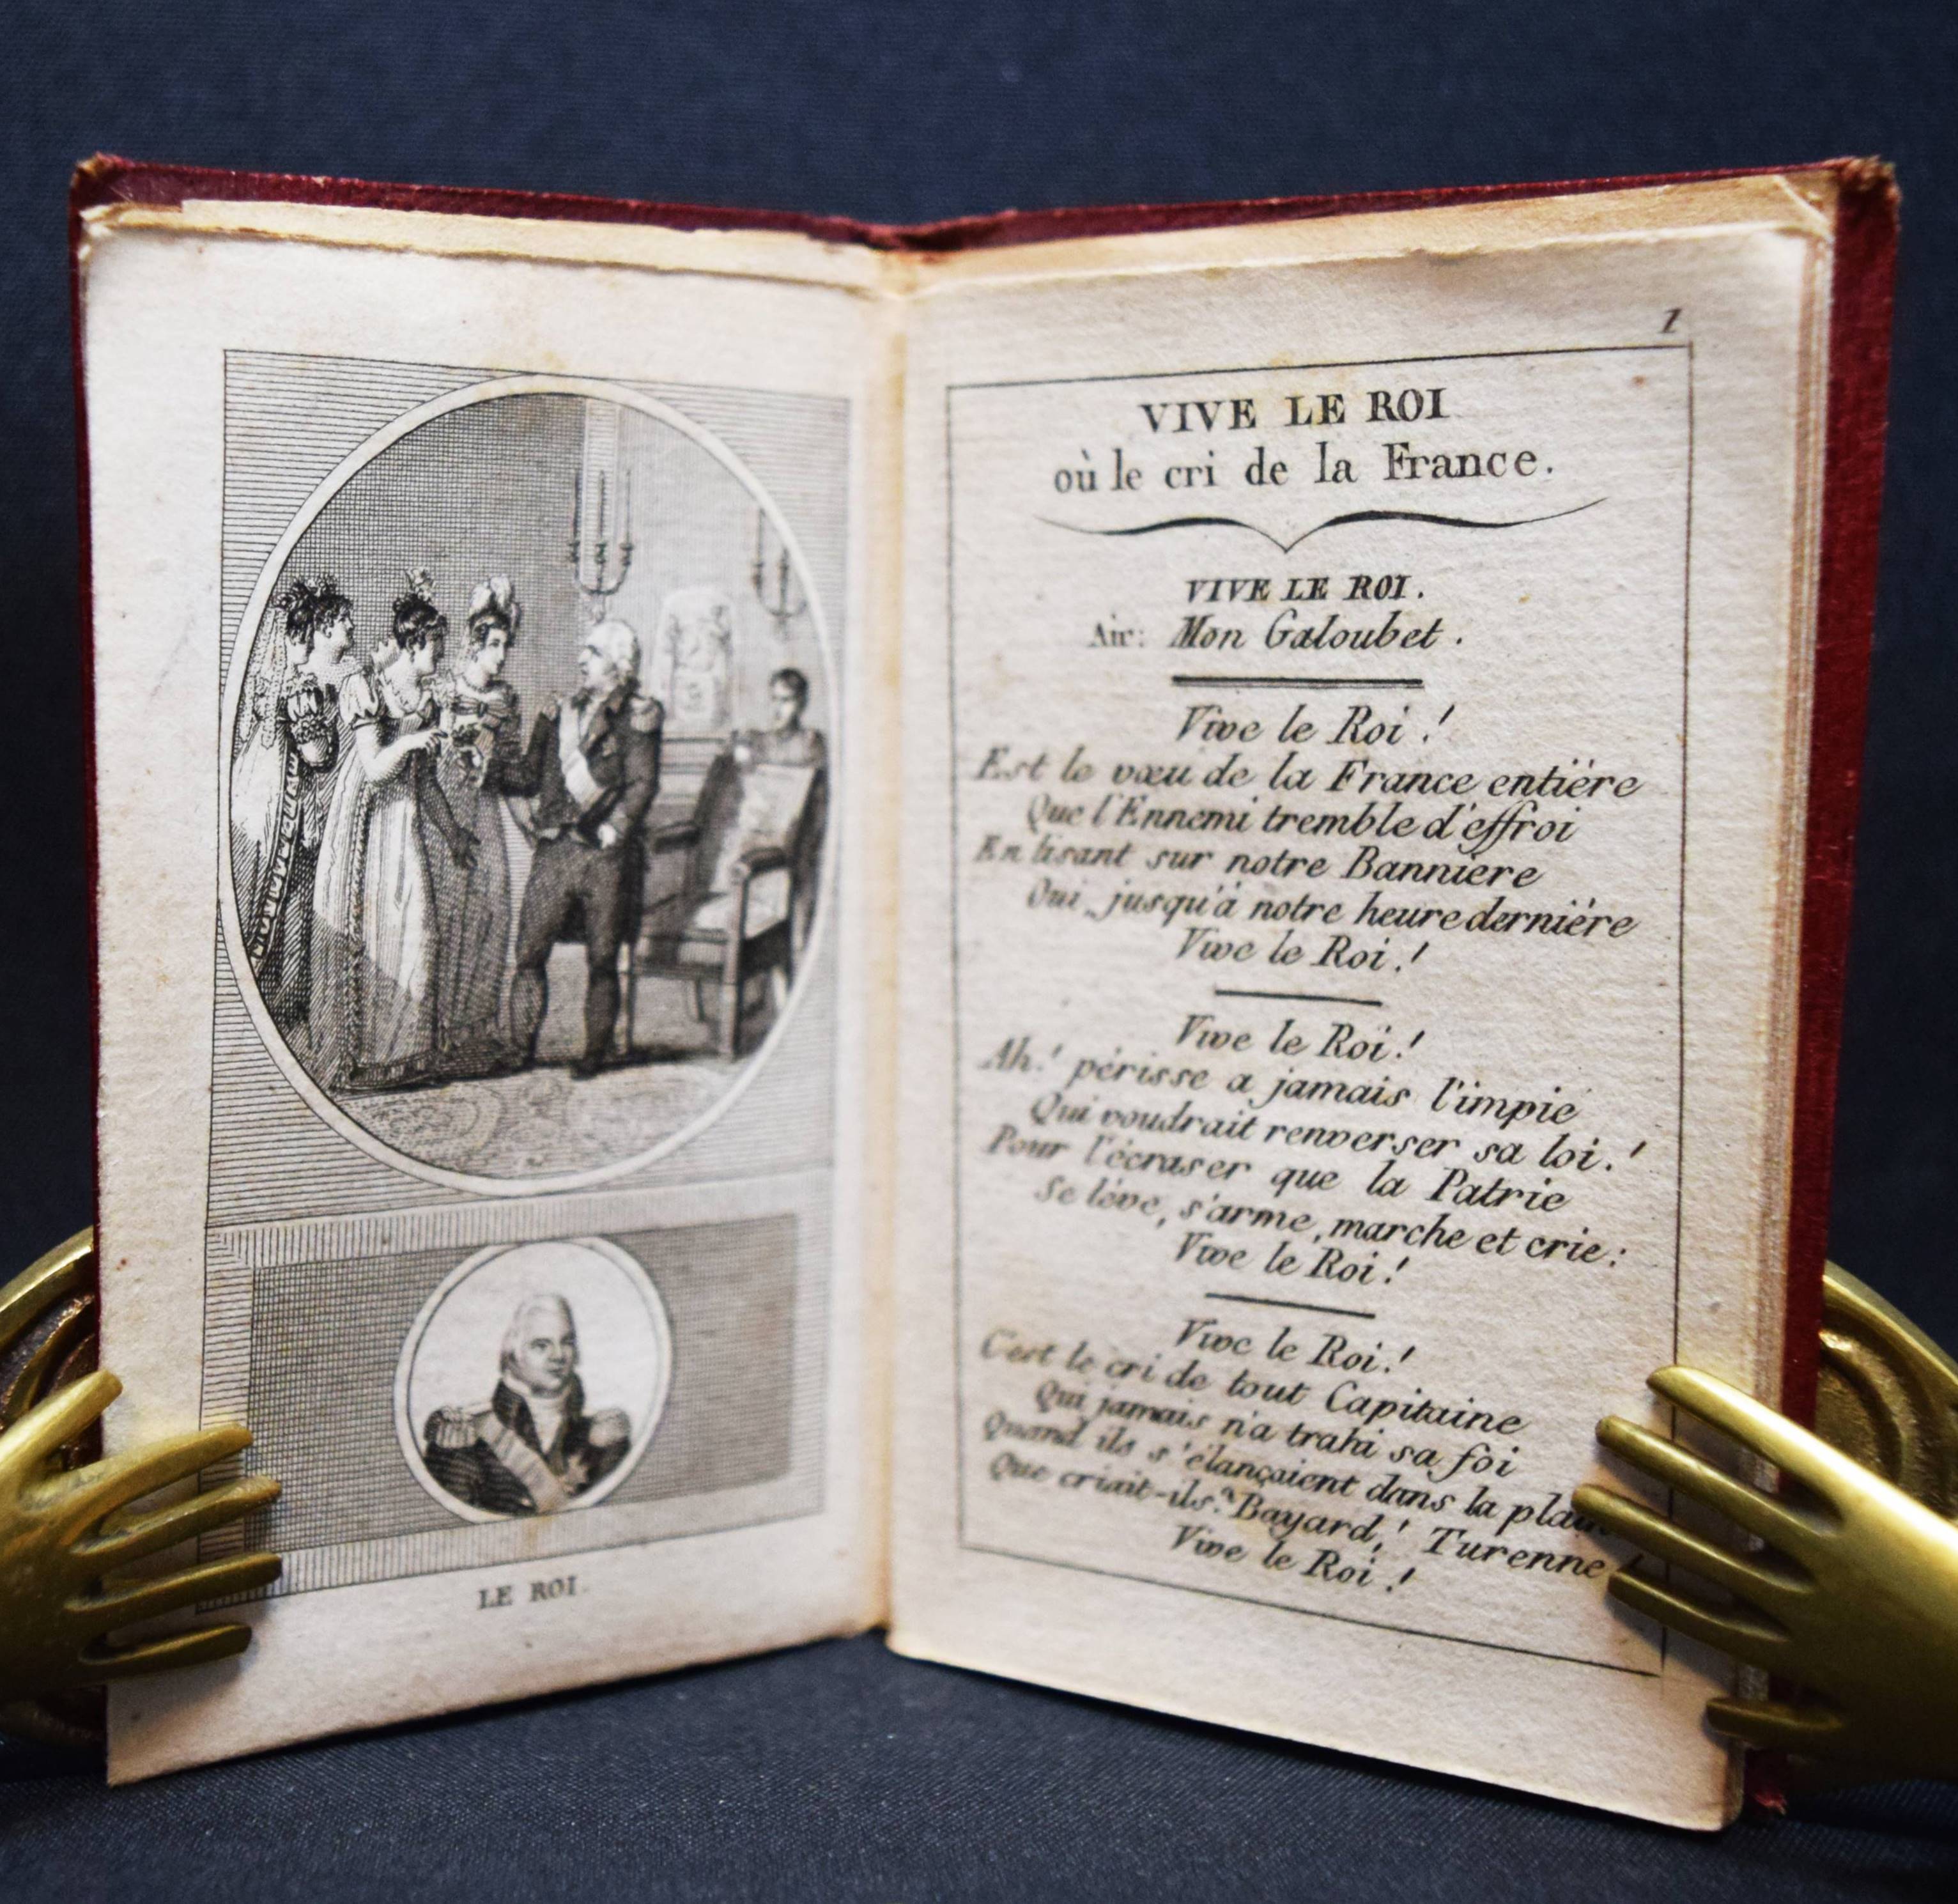 LE ROI.
1
VIVE LE ROI
où le cri de la France.
VIVE LE ROI.
Air: Mon Galoubet.
Vive le Roi!
Est le vœu de la France entiére
Que l'Ennemi tremble d'effroi
En lisant sur notre Banniere
Oui, jusqu'à notre heure derniére
Vive le Roi!
Vive le Roi!
Ah! périsse a jamais l'impie
Qui voudrait renverser sa loi!
Pour l'écraser que la Patrie
Se léve, s'arme, marche et crie:
Vive le Roi!
Vive le Roi!
C'est le cri de tout Capitaine
Qui jamais n'a trahi sa foi
Quand ils s'élançaient dans la
Que criait-ils? Bayard,! Turenne!
Vive le Roi!